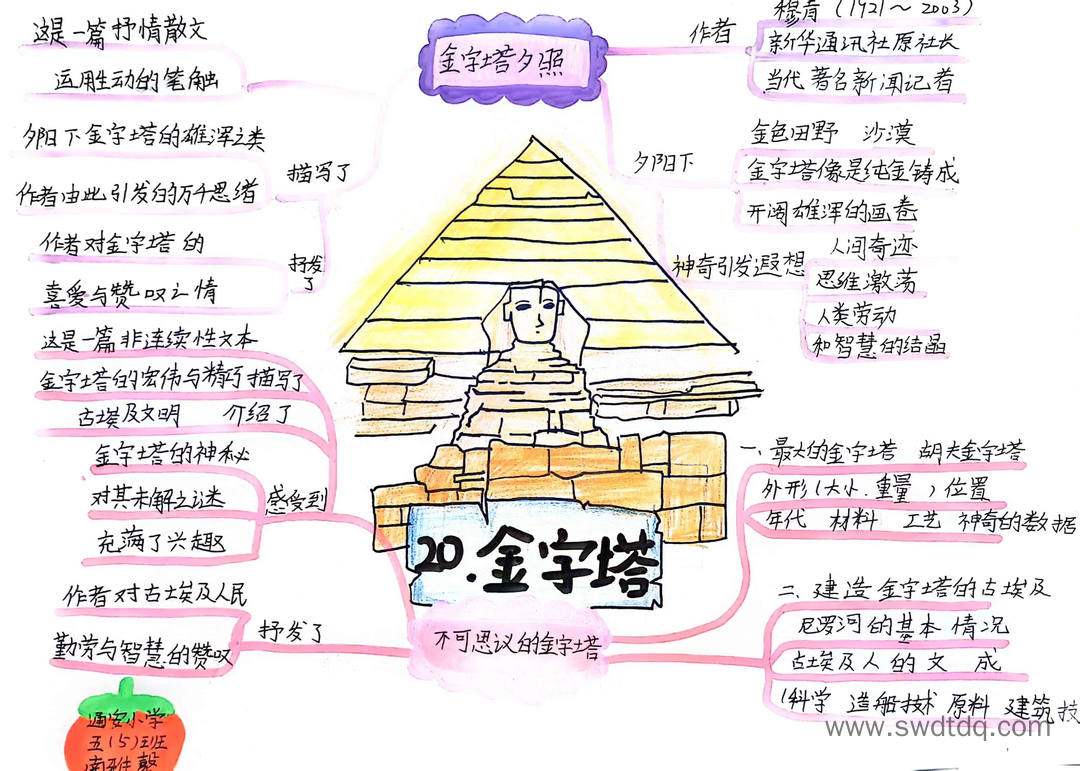 金字塔夕照
作者
穆青（1921～2003）
新华通讯社原社长
当代著名新闻记者
夕阳下
金色田野 沙漠
金字塔像是纯金铸成
开阔雄浑的画卷
神奇引发遐想
人间奇迹
思维激荡
人类劳动
和智慧的结晶
这是一篇抒情散文
运用生动的笔触
描写了
夕阳下金字塔的雄浑之美
作者由此引发的万千思绪
抒发了
作者对金字塔的
喜爱与赞叹之情
20.金字塔
不可思议的金字塔
这是一篇非连续性文本
金字塔的宏伟与精巧描写了
古埃及文明 介绍了
感受到
金字塔的神秘
对其未解之谜
充满了兴趣
抒发了
作者对古埃及人民
勤劳与智慧的赞叹
一、最大的金字塔 胡夫金字塔
外形（大小.重量）位置
年代 材料 工艺 神奇的数据
二、建造金字塔的古埃及
尼罗河的基本情况
古埃及人的文 成
（科学 造船技术 原料 建筑技
通安小学
五（5）班
南雅馨
www.swdtdq.com